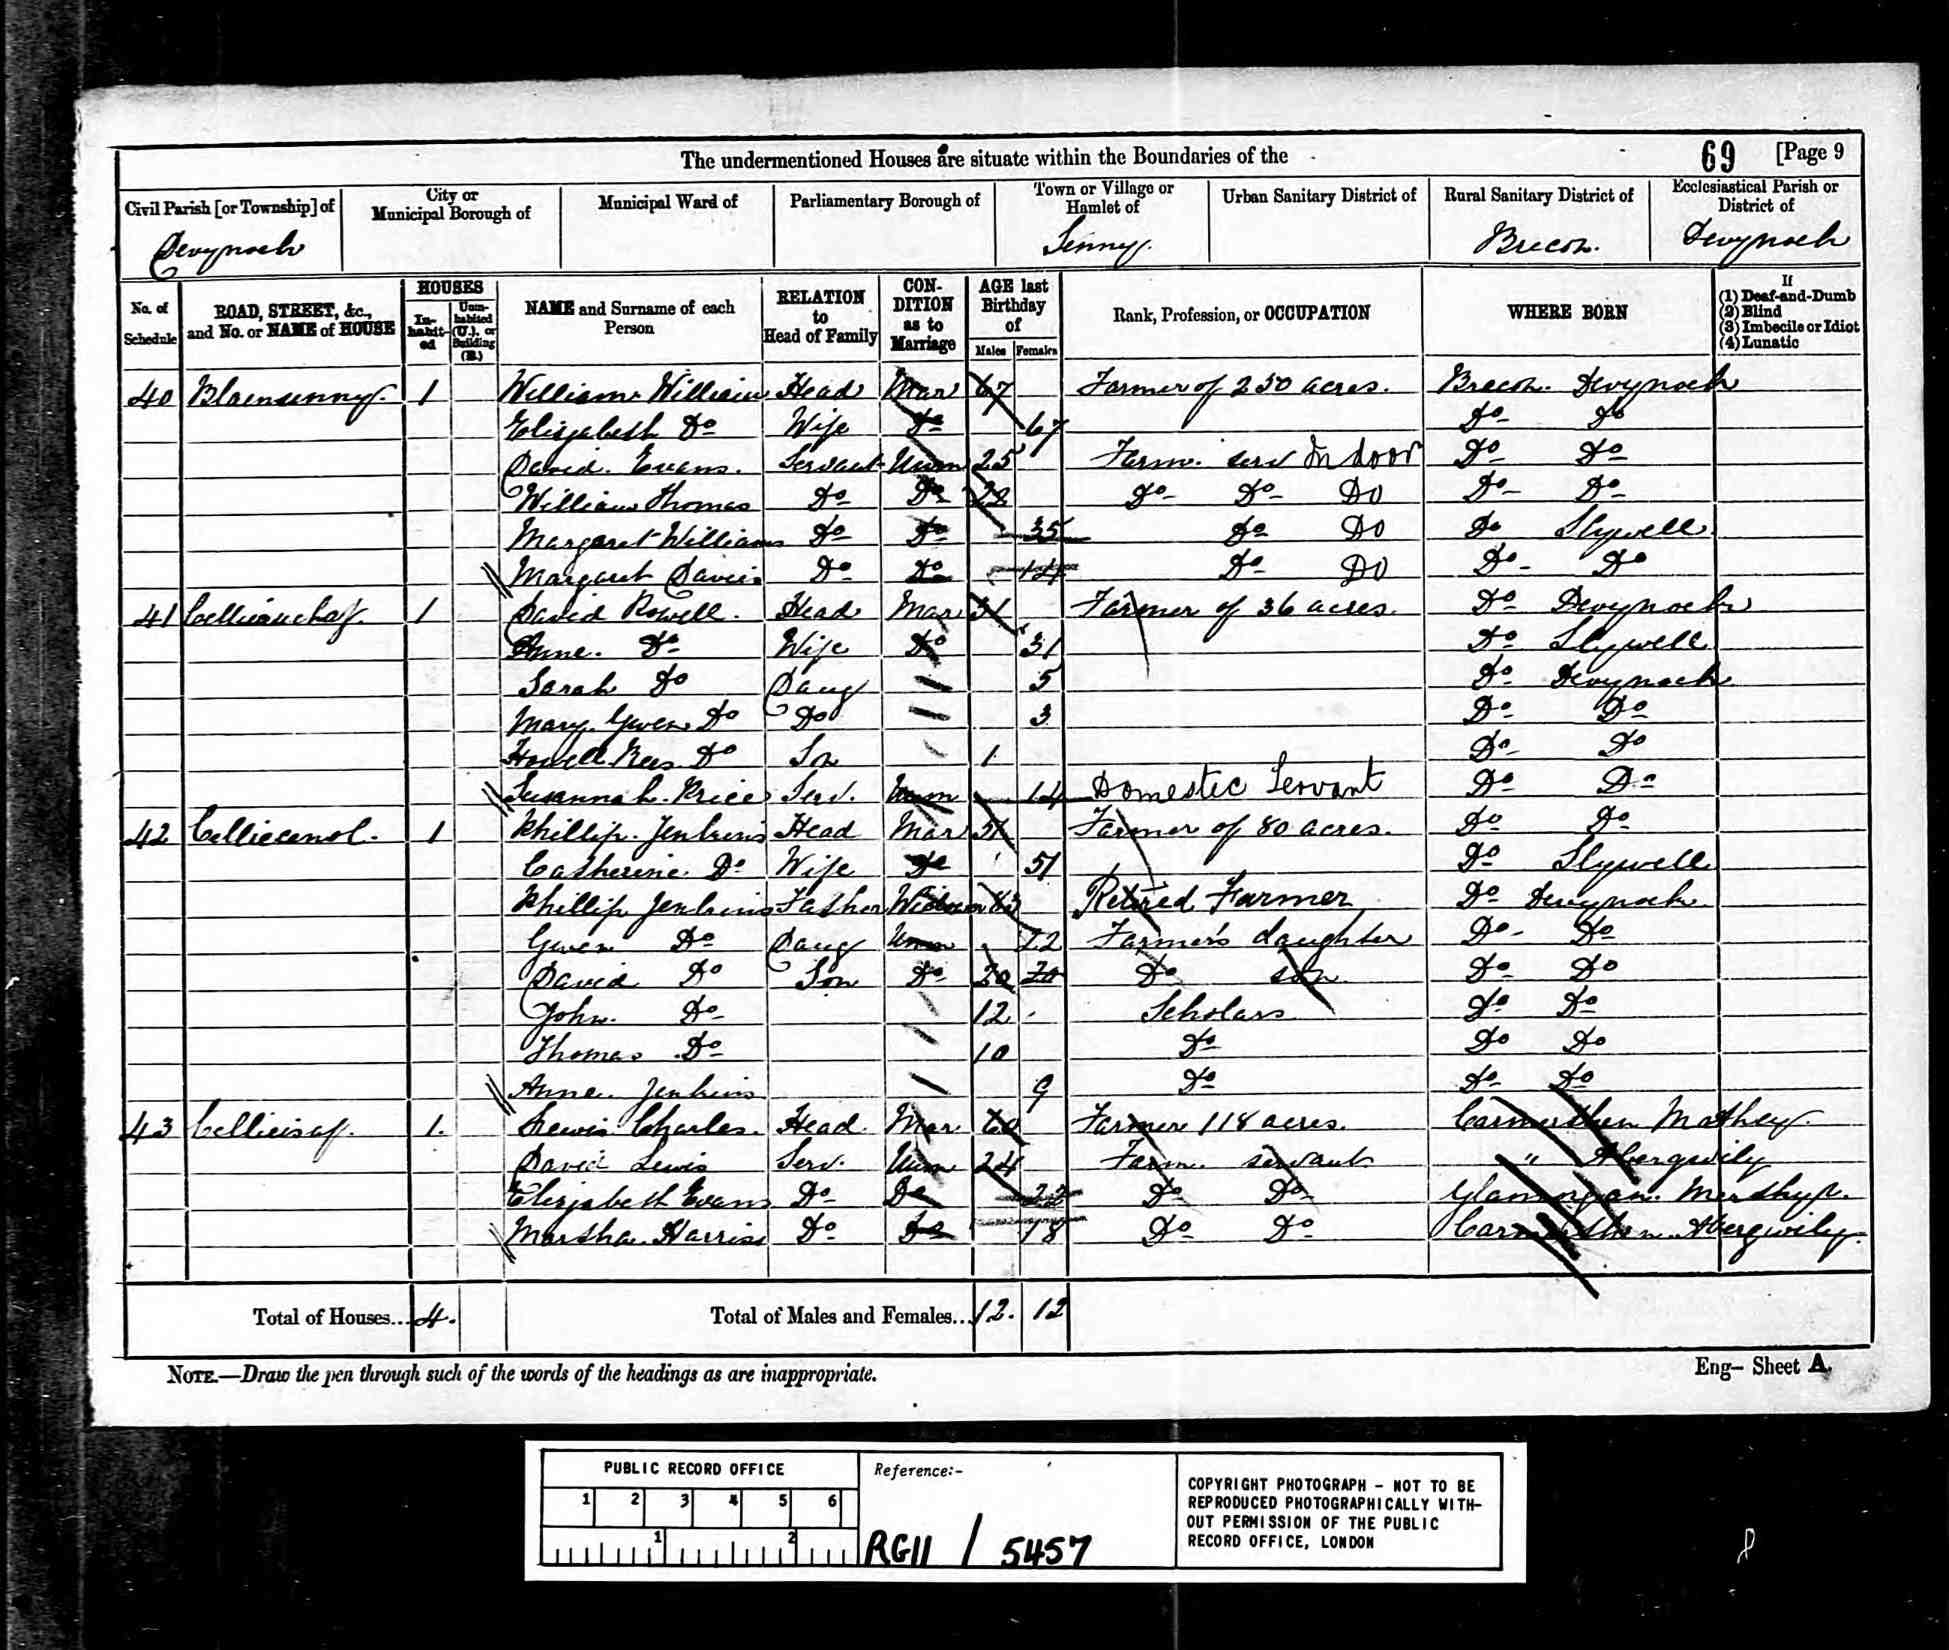 The undermentioned Houses are situate within the Boundaries of the 69 [Page 9
Civil Parish [or Township] of City or Municipal Borough of Municipal Ward of Parliamentary Borough of Town or Village or Hamlet of Urban Sanitary District of Rural Sanitary District of Ecclesiastical Parish or District of
Devynock Senny. Brecon. Devynock
No. of Schedule ROAD, STREET, &c., and No. or NAME of HOUSE HOUSES Inhabited Uninhabited (U.), or Building (B.) NAME and Surname of each Person RELATION to Head of Family CONDITION as to Marriage AGE last Birthday of Males Females Rank, Profession, or OCCUPATION WHERE BORN If (1) Deaf-and-Dumb (2) Blind (3) Imbecile or Idiot (4) Lunatic
40 Blaensenny. 1 William William Head Mar 67 Farmer of 250 acres. Brecon. Devynock
Elizabeth Do Wife Do 67 Do Do
David. Evans. Servant Unm 25 Farm. serv Indoor Do Do
William Thomas Do Do 22 Do Do Do Do Do
Margaret Williams Do Do 35 Do Do Do Llywell
Margaret Davis Do Do 14 Do Do Do Do
41 1 David Powell. Head Mar 31 Farmer of 36 acres. Do Devynock
Anne. Do Wife Do 31 Do Llywell
Sarah Do Daug 5 Do Devynock
Mary. Gwen Do Do 3 Do Do
Howell Rees Do Son 1 Do Do
Susannah. Price Serv. Unm 14 Domestic Servant Do Do
42 1 Phillip. Jenkins Head Mar 51 Farmer of 80 acres. Do Do
Catherine Do Wife Do 51 Do Llywell
Phillip Jenkins Father Widower 83 Retired Farmer Do Devynock
Gwen Do Daug Unm 22 Farmer's daughter Do Do
David Do Son Do 20 20 Do son Do Do
John. Do 12 Scholars Do Do
Thomas Do 10 Do Do Do
Anne. Jenkins 9 Do Do Do
43 1. Lewis Charles. Head. Mar 60 Farmer 118 acres. Carmarthen Mathey.
David Lewis Serv. Unm 24 Farm. servant " Abergwily
Elizabeth Evans Do Do 22 Do Do Glamorgan. Merthyr.
Martha. Harriss Do Do 18 Do Do Carmarthen. Abergwily.
Total of Houses... 4. Total of Males and Females... 12. 12
NOTE.—Draw the pen through such of the words of the headings as are inappropriate. Eng— Sheet A.
PUBLIC RECORD OFFICE Reference:-
1 2 3 4 5 6
1 2
RG11 / 5457
COPYRIGHT PHOTOGRAPH - NOT TO BE
REPRODUCED PHOTOGRAPHICALLY WITH-
OUT PERMISSION OF THE PUBLIC
RECORD OFFICE, LONDON